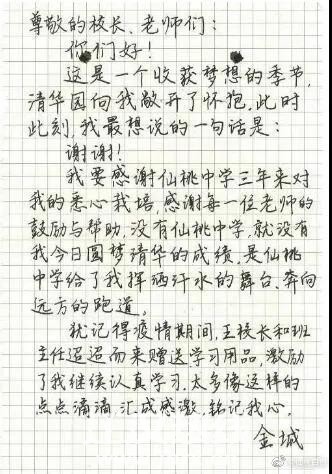 尊敬的校长、老师们：
你们好！
这是一个收获梦想的季节
清华园向我敞开了怀抱，此时
此刻，我最想说的一句话是：
谢谢！
我要感谢仙桃中学三年来对
我的悉心栽培，感谢每一位老师的
鼓励与帮助，没有仙桃中学，就没有
我今日圆梦清华的成绩，是仙桃
中学给了我挥洒汗水的舞台、奔向
远方的跑道。
犹记得疫情期间，王校长和班
主任迢迢而来赠送学习用品，激励
了我继续认真学习，太多像这样的
点点滴滴，汇成感激，铭记我心。
金城